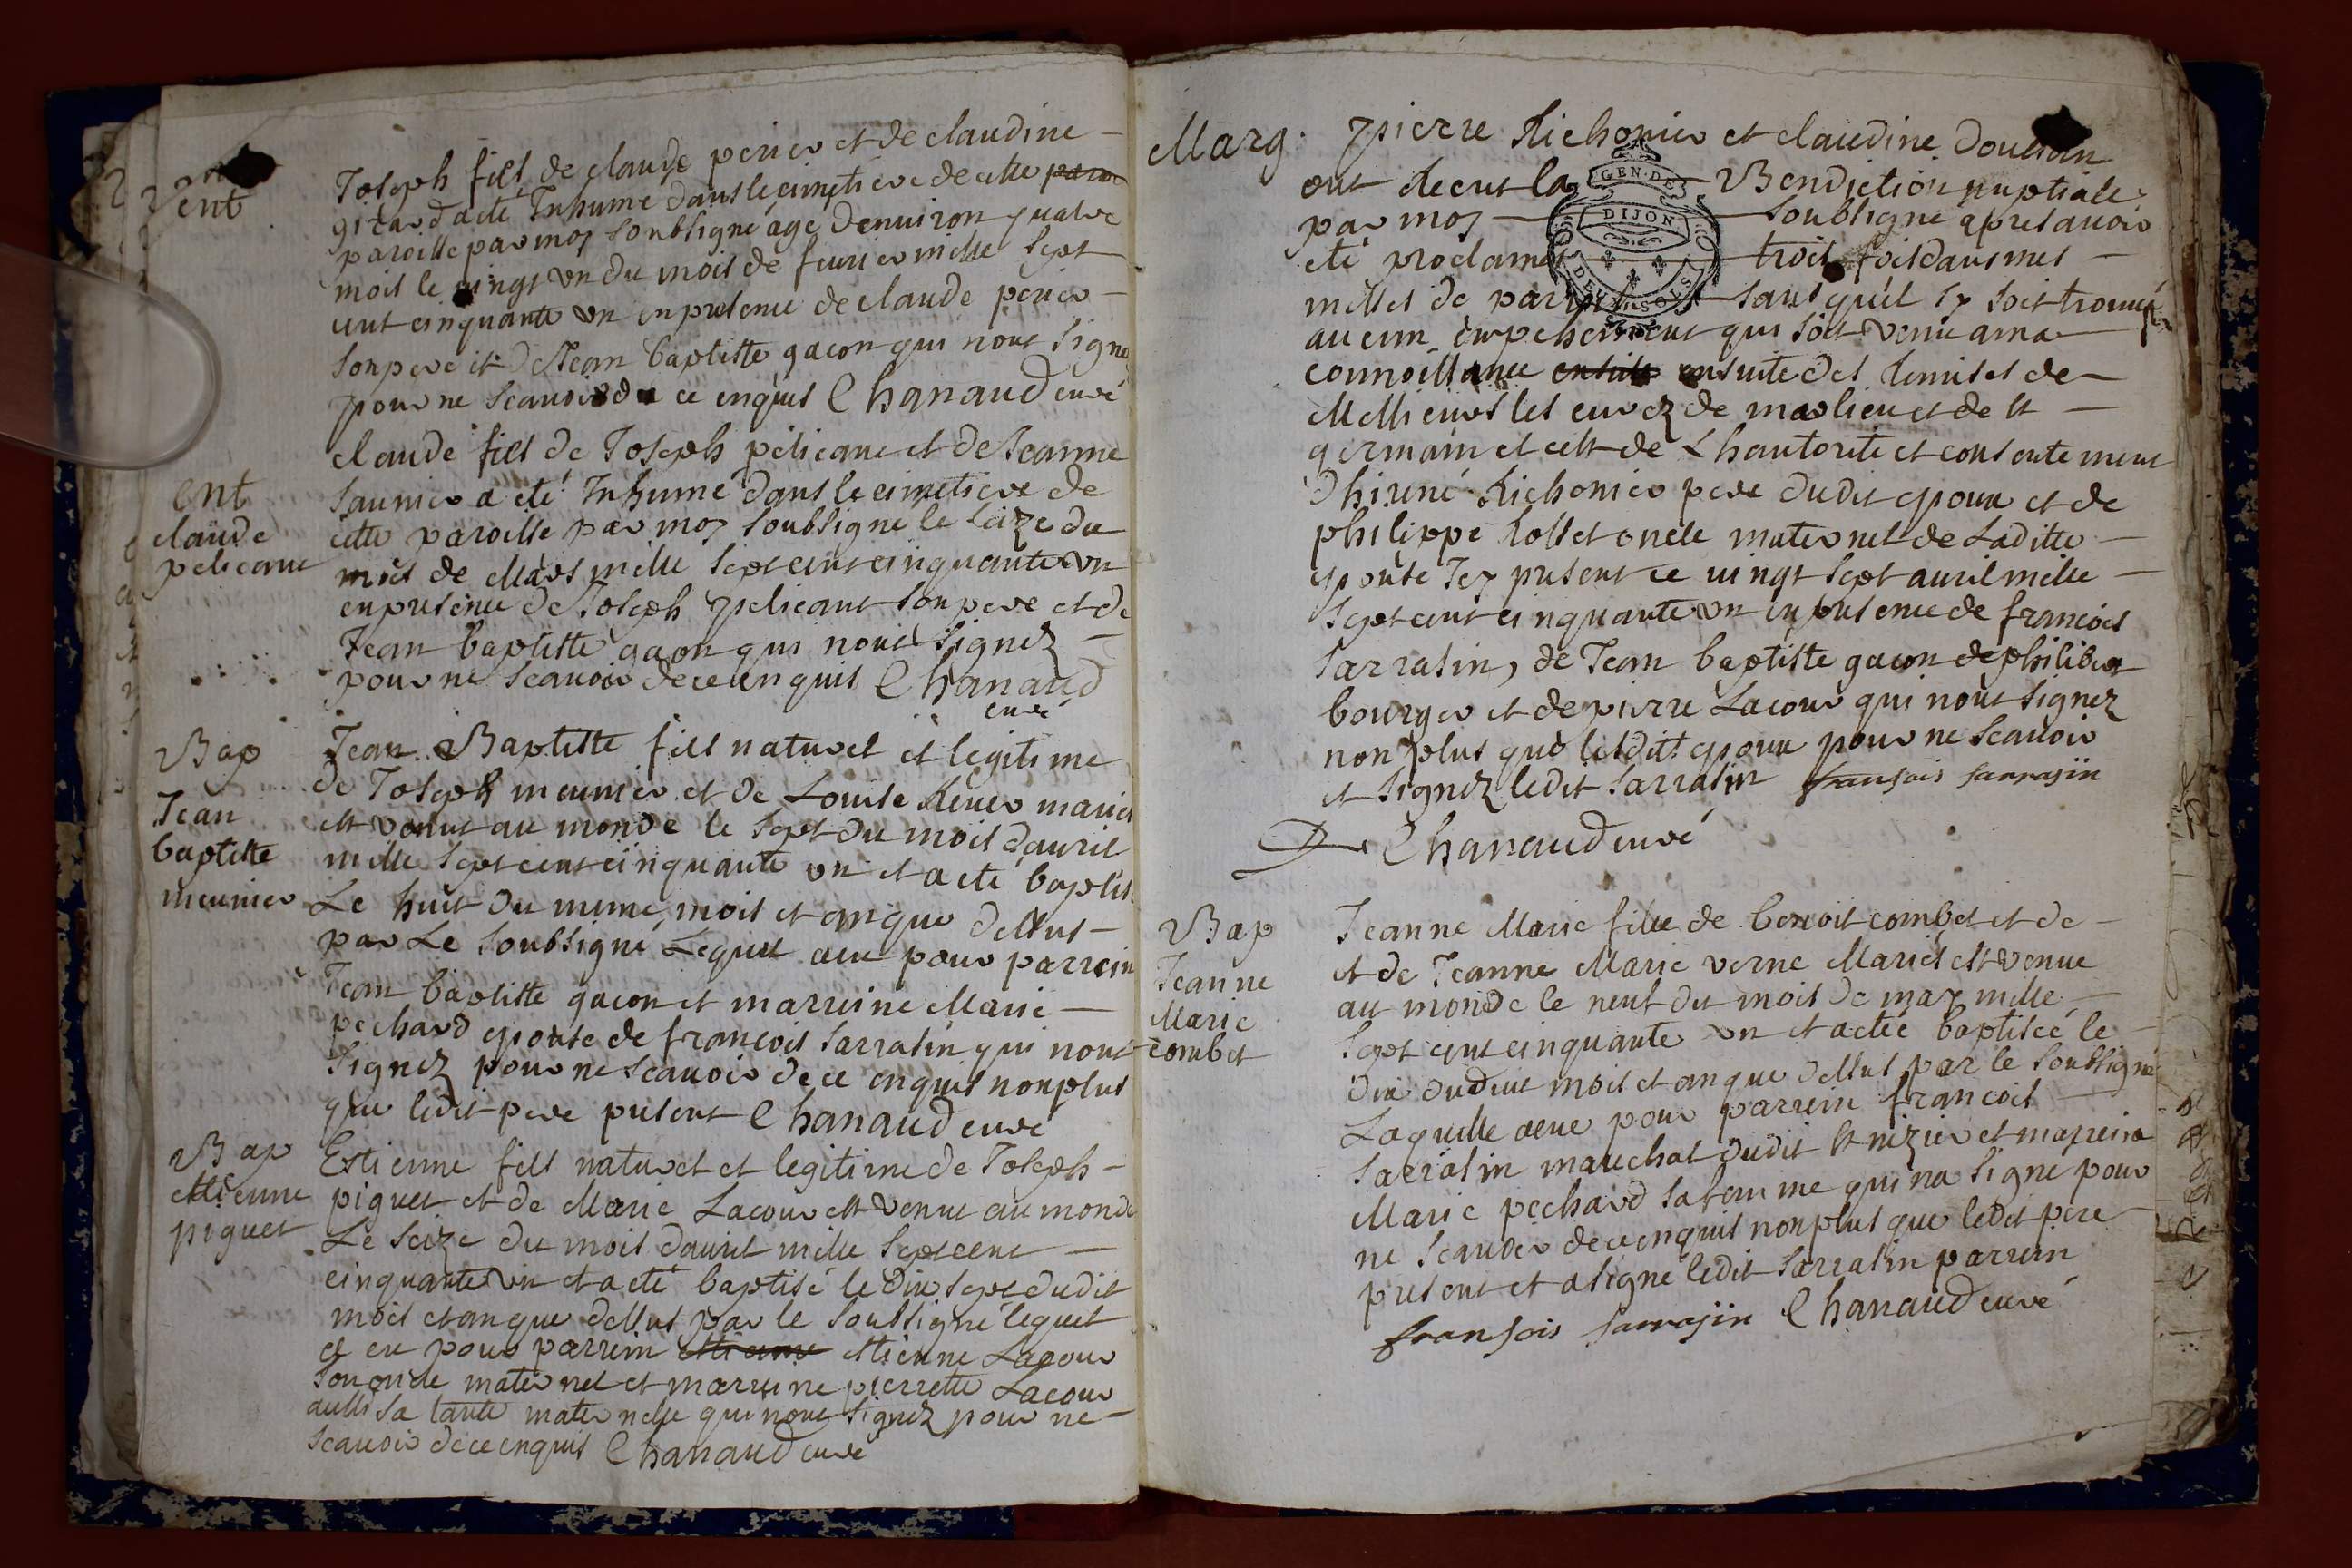 ent
Joseph fils de claude perier et de claudine
gitard a eté Inhumé dans le cimetiere de cette paro
paroisse par moy soubsigné agé denuiron quatre
mois le vingt un du mois de feurier mille sept
cent cinquante un en presence de claude perier
son pere et de Jean baptiste gacon qui nont signe
pour ne scauoir de ce enquis Chanaud curé
ent
claude
pelicant
claude fils de Joseph pelicant et de Jeanne
saunier a eté Inhumé dans le cimetiere de
cette paroisse par moy soubsigné le saize du
mois de Mars mille sept cent cinquante un
en presence de Joseph pelicant son pere et de
Jean baptiste gacon qui nont signez
pour ne scauoir de ce enquis Chanaud
curé
Bap
Jean
baptiste
meunier
Jean Baptiste fils naturel et legitime
de Joseph meunier et de Louise Reuer mariés
est venut au monde le sept du mois dauril
mille sept cent cinquante un et a eté baptis
Le huit du meme mois et an que dessus
par Le soubsigné Lequel a eu pour parrein
Jean baptiste gacon et marreine Marie
pechard epouse de francois sarrasin qui nont
signez pour ne scauoir de ce enquis non plus
que ledit pere present Chanaud curé
Bap
estienne
piguet
Estienne fils naturel et legitime de Joseph
piguet et de Marie Lacour est venut au monde
Le seize du mois dauril mille sept cent
cinquante un et a eté baptisé le dix sept dudit
mois et an que dessus par le soubsigné lequel
a eu pour parrein estienne estienne Lacour
son oncle maternel et marreine pierrette Lacour
aussi sa tante maternelle qui nont signez pour ne
scauoir de ce enquis Chanaud curé
Marg.
pierre Richonier et claudine
ont recent la Bendiction nuptiale
par moy soubsigné apres auoir
eté proclamés trois fois dans mes
messes de parroisse sans quil sy soit trouué
aucun empechement qui soit venu a ma
connoissance ensuite ensuite des remises de
Messieurs les curez de marlieu et de st
germain et cest de Lhautorité et consentement
dhirené Richonier pere dudit epoux et de
philippe rosset oncle maternel de Laditte
epouse Icy present ce vingt sept auril mille
sept cent cinquante un en presence de francois
sarrasin, de Jean baptiste gacon de philibert
bourger et de pierre Lacour qui nont signez
non plus que lesdits epoux pour ne scauoir
et signez ledit sarrasin fransois sarrasin
Chanaud curé
GEN. DE
DIJON
Bap
Jeanne
Marie
combet
Jeanne Marie fille de benoit combet et de
et de Jeanne Marie verne Mariés est venue
au monde le neuf du mois de may mille
sept cent cinquante un et a eté baptisée le
dix dudit mois et an que dessus par le soubsigné
Laquelle a eue pour parrein francois
sarrasin marechal dudit st nizier et mareine
Marie pechard sa femme qui na signe pour
ne scauoir de ce enquis non plus que ledit pere
present et a signé ledit sarrasin parrein
fransois sarrasin Chanaud curé